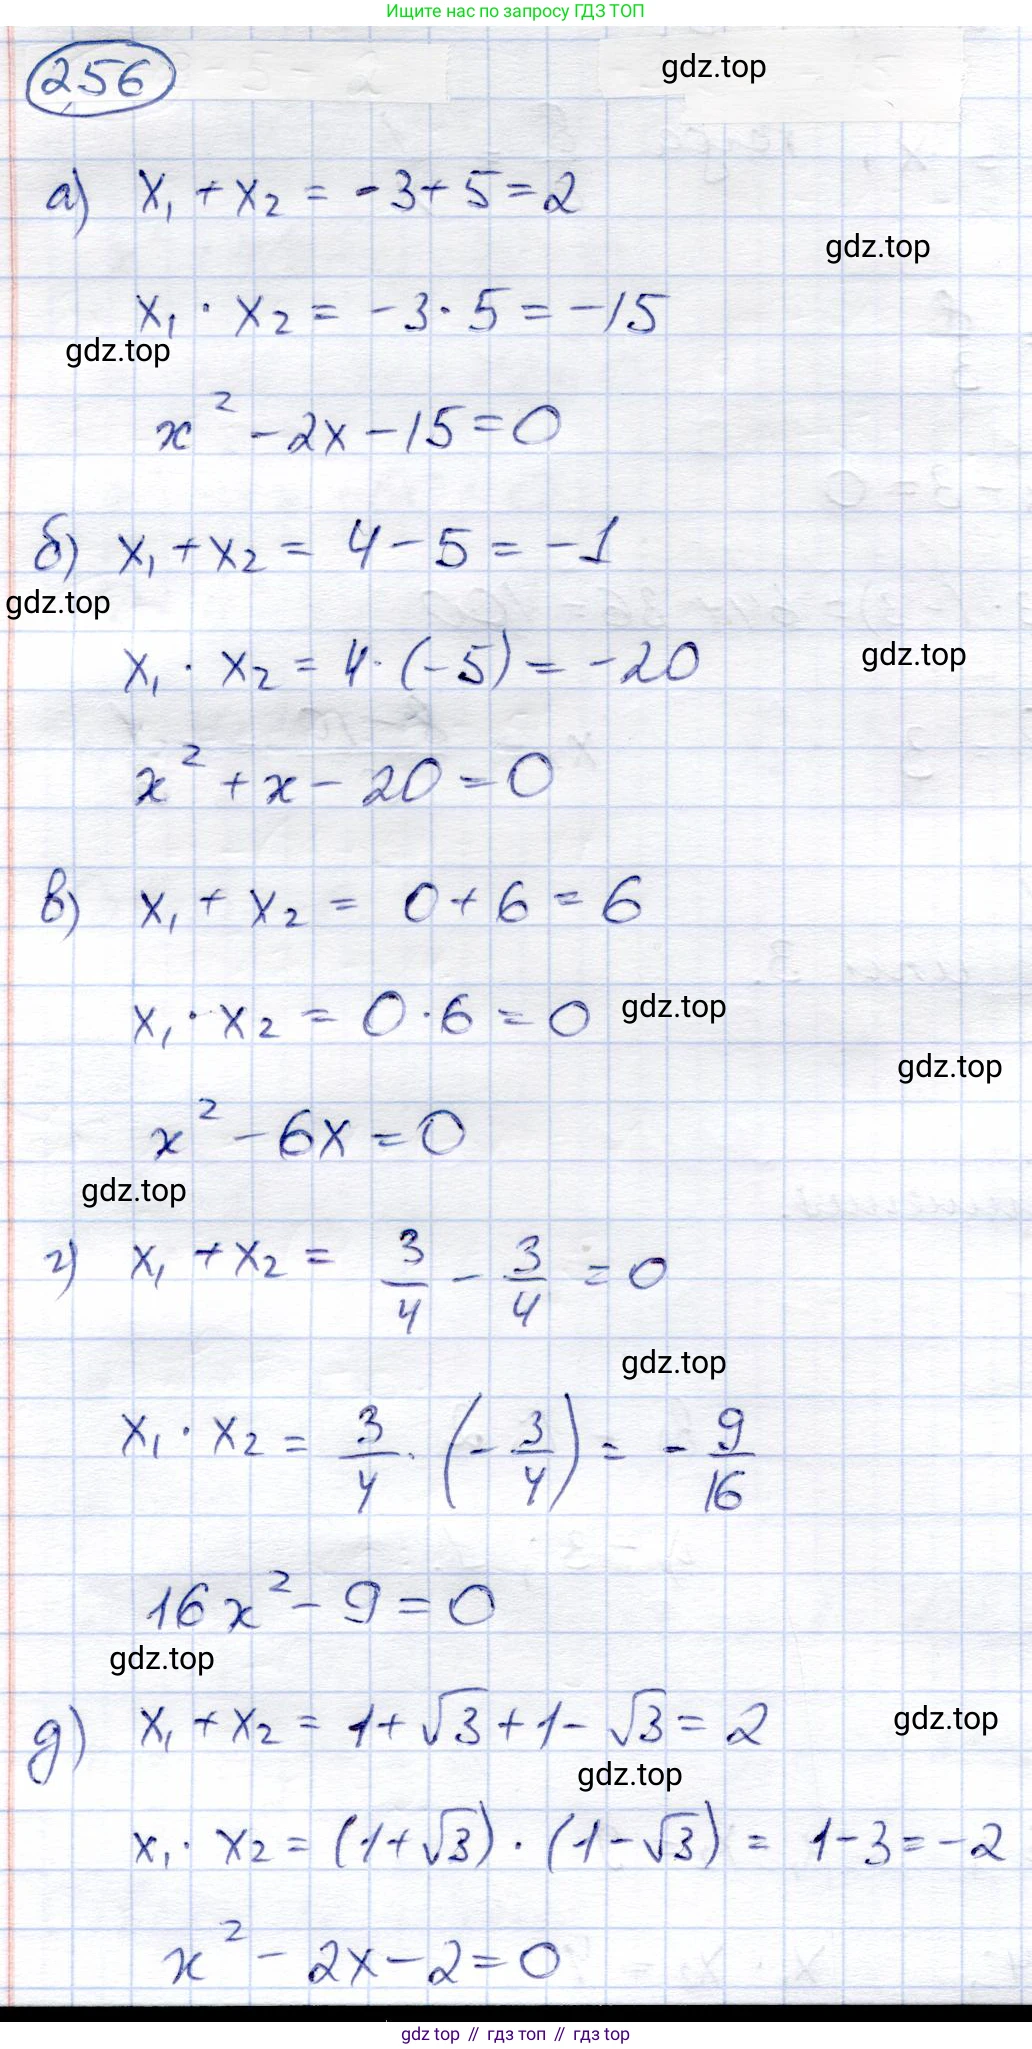 Ищите нас по запросу ГДЗ ТОП
256
gdz.top
а) x₁ + x₂ = -3 + 5 = 2
gdz.top
x₁ · x₂ = -3 · 5 = -15
gdz.top
x² - 2x - 15 = 0
б) x₁ + x₂ = 4 - 5 = -1
gdz.top
x₁ · x₂ = 4 · (-5) = -20
gdz.top
x² + x - 20 = 0
в) x₁ + x₂ = 0 + 6 = 6
x₁ · x₂ = 0 · 6 = 0
gdz.top
gdz.top
x² - 6x = 0
gdz.top
г) x₁ + x₂ = 3/4 - 3/4 = 0
gdz.top
x₁ · x₂ = 3/4 · (-3/4) = -9/16
16x² - 9 = 0
gdz.top
д) x₁ + x₂ = 1 + √3 + 1 - √3 = 2
gdz.top
gdz.top
x₁ · x₂ = (1 + √3) · (1 - √3) = 1 - 3 = -2
x² - 2x - 2 = 0
gdz top // гдз топ // gdz top